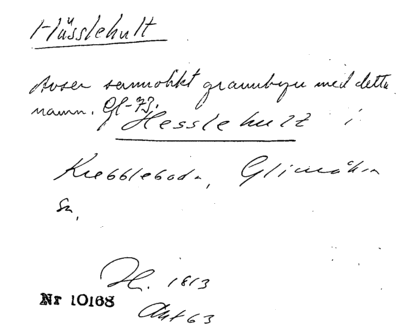 Hässlehult
Avser sannolikt grannbyn med detta
namn. Gl-73.
Hesslehult i
Krebbleboda, Glimåkra
sn.
Hi. 1813
Nr 10168
Akt 63